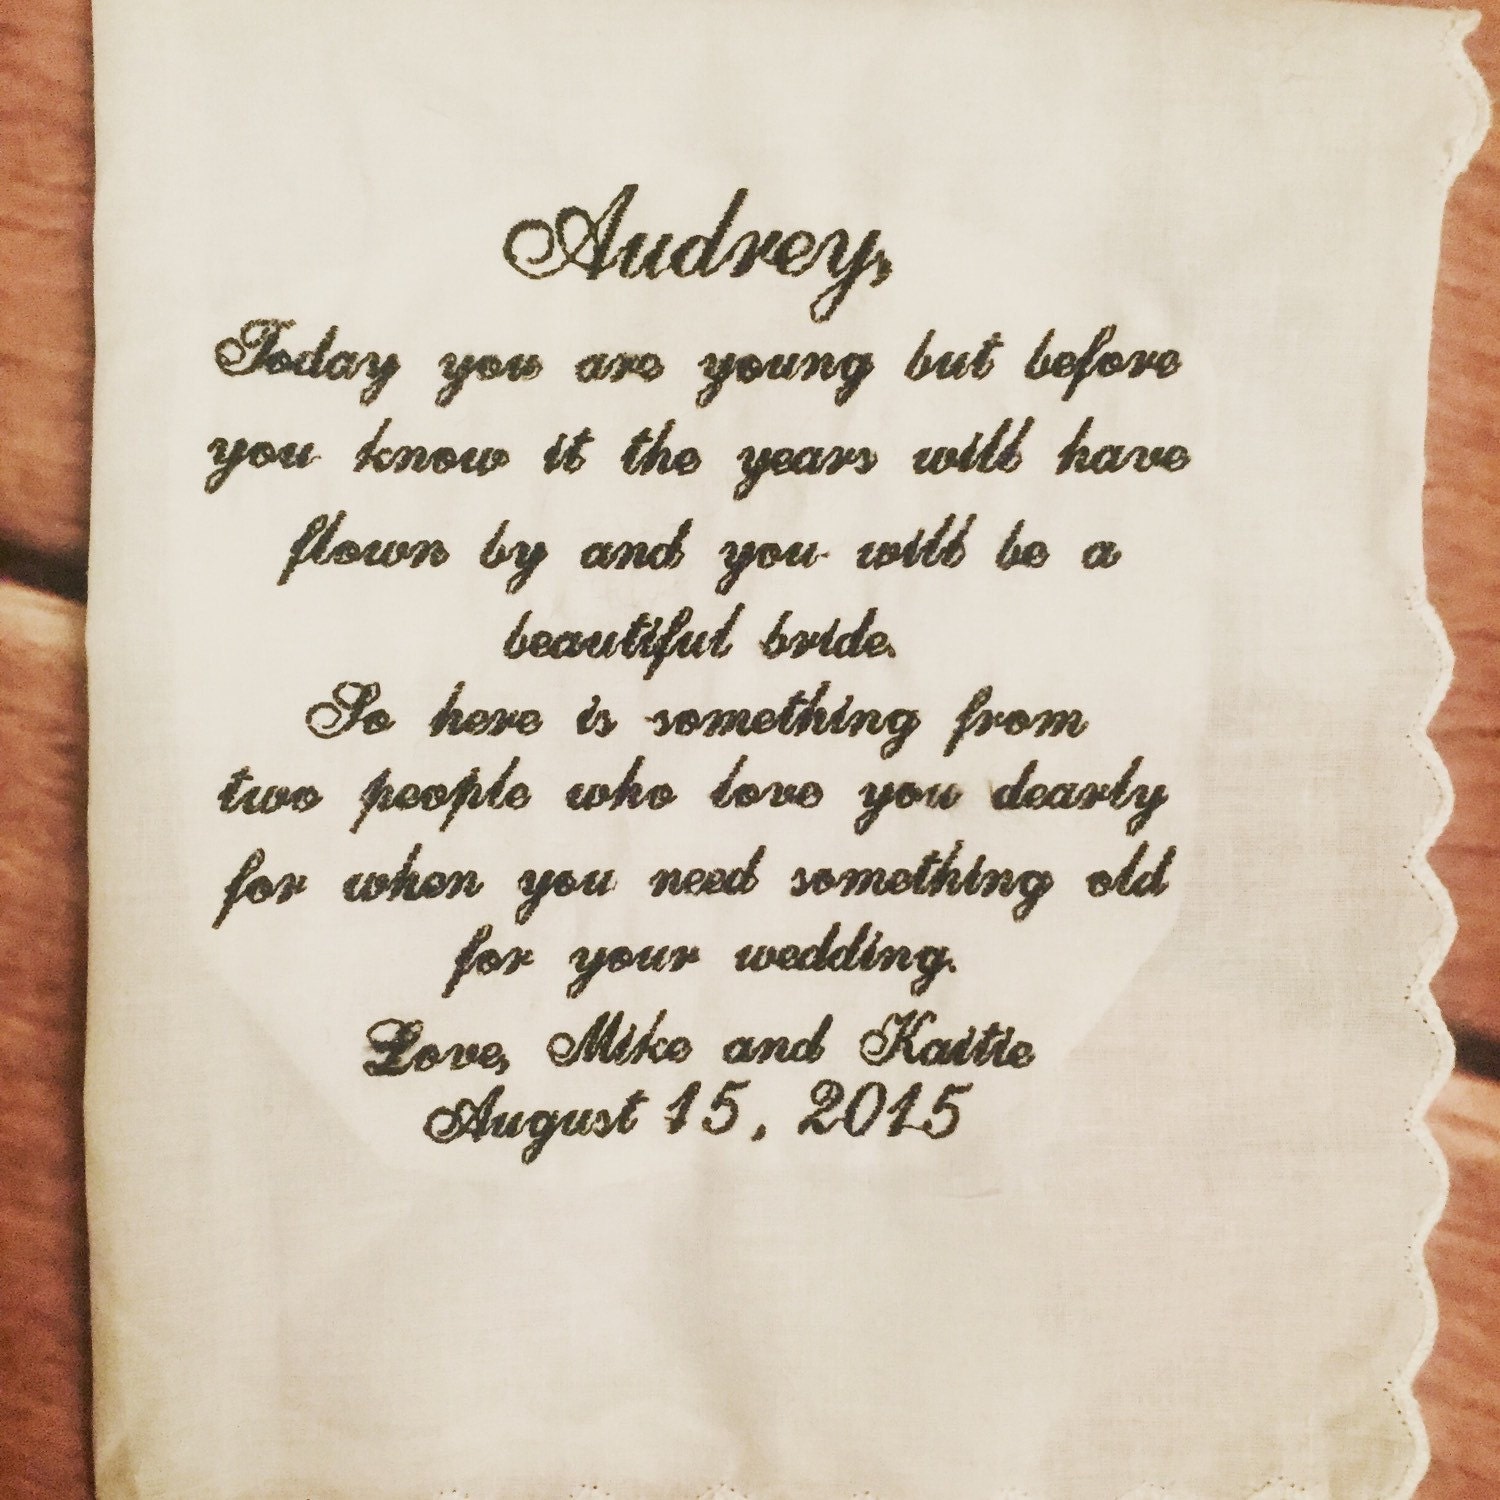 Audrey,
Today you are young but before
you know it the years will have
flown by and you will be a
beautiful bride.
So here is something from
two people who love you dearly
for when you need something old
for your wedding.
Love, Mike and Kaitie
August 15, 2015